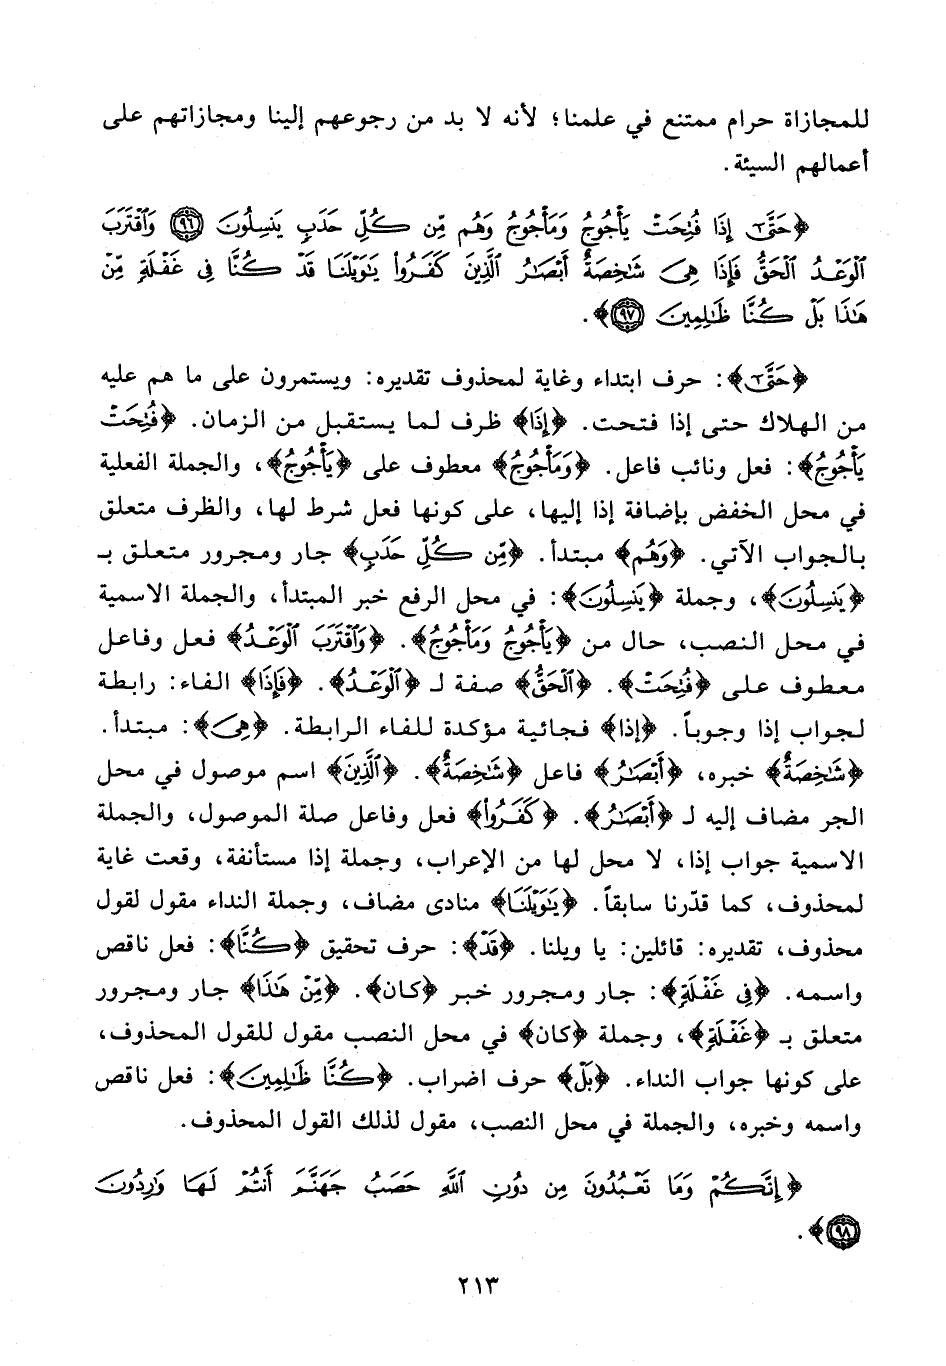 للمجازاة حرام ممتنع في علمنا؛ لأنه لا بد من رجوعهم إلينا ومجازاتهم على
أعمالهم السيئة.
﴿حَتَّىٰٓ إِذَا فُتِحَتْ يَأْجُوجُ وَمَأْجُوجُ وَهُم مِّن كُلِّ حَدَبٍ يَنسِلُونَ ﴿٩٦﴾ وَٱقْتَرَبَ
ٱلْوَعْدُ ٱلْحَقُّ فَإِذَا هِىَ شَٰخِصَةٌ أَبْصَٰرُ ٱلَّذِينَ كَفَرُوا۟ يَٰوَيْلَنَا قَدْ كُنَّا فِى غَفْلَةٍ مِّنْ
هَٰذَا بَلْ كُنَّا ظَٰلِمِينَ ﴿٩٧﴾﴾.
﴿حَتَّىٰٓ﴾: حرف ابتداء وغاية لمحذوف تقديره: ويستمرون على ما هم عليه
من الهلاك حتى إذا فتحت. ﴿إِذَا﴾ ظرف لما يستقبل من الزمان. ﴿فُتِحَتْ
يَأْجُوجُ﴾: فعل ونائب فاعل. ﴿وَمَأْجُوجُ﴾ معطوف على ﴿يَأْجُوجُ﴾، والجملة الفعلية
في محل الخفض بإضافة إذا إليها، على كونها فعل شرط لها، والظرف متعلق
بالجواب الآتي. ﴿وَهُم﴾ مبتدأ. ﴿مِّن كُلِّ حَدَبٍ﴾ جار ومجرور متعلق بـ
﴿يَنسِلُونَ﴾، وجملة ﴿يَنسِلُونَ﴾: في محل الرفع خبر المبتدأ، والجملة الاسمية
في محل النصب، حال من ﴿يَأْجُوجُ وَمَأْجُوجُ﴾. ﴿وَٱقْتَرَبَ ٱلْوَعْدُ﴾ فعل وفاعل
معطوف على ﴿فُتِحَتْ﴾. ﴿ٱلْحَقُّ﴾ صفة لـ ﴿ٱلْوَعْدُ﴾. ﴿فَإِذَا﴾ الفاء: رابطة
لجواب إذا وجوباً. ﴿إذا﴾ فجائية مؤكدة للفاء الرابطة. ﴿هِىَ﴾: مبتدأ.
﴿شَٰخِصَةٌ﴾ خبره، ﴿أَبْصَٰرُ﴾ فاعل ﴿شَٰخِصَةٌ﴾. ﴿ٱلَّذِينَ﴾ اسم موصول في محل
الجر مضاف إليه لـ ﴿أَبْصَٰرُ﴾. ﴿كَفَرُوا۟﴾ فعل وفاعل صلة الموصول، والجملة
الاسمية جواب إذا، لا محل لها من الإعراب، وجملة إذا مستأنفة، وقعت غاية
لمحذوف، كما قدّرنا سابقاً. ﴿يَٰوَيْلَنَا﴾ منادى مضاف، وجملة النداء مقول لقول
محذوف، تقديره: قائلين: يا ويلنا. ﴿قَدْ﴾: حرف تحقيق ﴿كُنَّا﴾: فعل ناقص
واسمه. ﴿فِى غَفْلَةٍ﴾: جار ومجرور خبر ﴿كان﴾. ﴿مِّنْ هَٰذَا﴾ جار ومجرور
متعلق بـ ﴿غَفْلَةٍ﴾، وجملة ﴿كان﴾ في محل النصب مقول للقول المحذوف،
على كونها جواب النداء. ﴿بَلْ﴾ حرف اضراب. ﴿كُنَّا ظَٰلِمِينَ﴾: فعل ناقص
واسمه وخبره، والجملة في محل النصب، مقول لذلك القول المحذوف.
﴿إِنَّكُمْ وَمَا تَعْبُدُونَ مِن دُونِ ٱللَّهِ حَصَبُ جَهَنَّمَ أَنتُمْ لَهَا وَٰرِدُونَ
﴿٩٨﴾﴾.
٢١٣